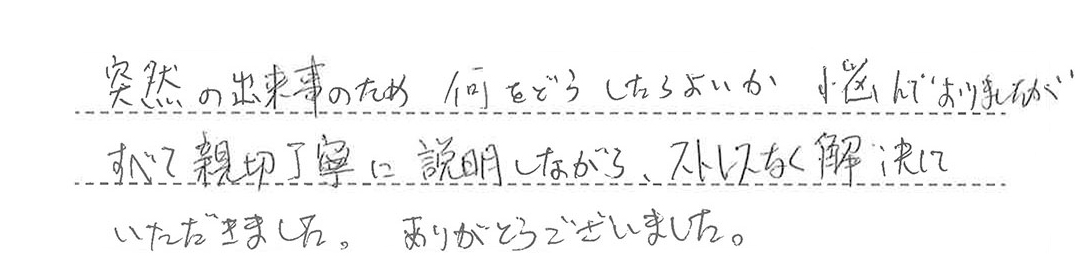 突然の出来事のため 何をどうしたらよいか 悩んでおりましたが
すべて親切丁寧に説明しながら、ストレスなく解決して
いただきました。 ありがとうございました。